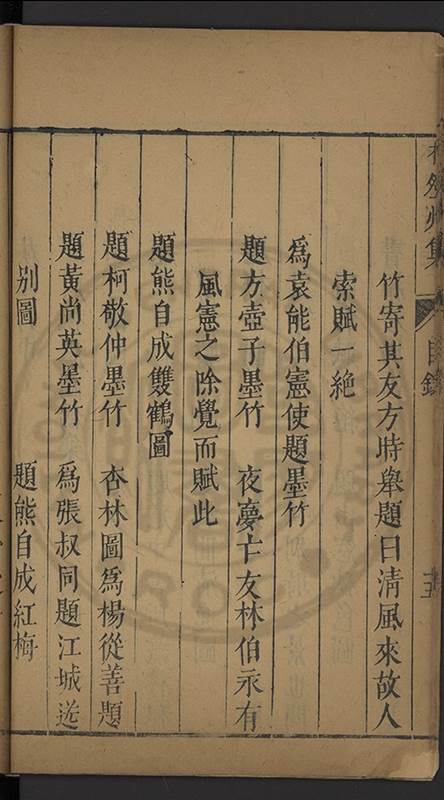 集 目錄
竹寄其友方時舉題曰清風來故人
索賦一絕
爲袁能伯憲使題墨竹
題方壺子墨竹 夜夢亡友林伯永有
風憲之除覺而賦此
題熊自成雙鶴圖
題柯敬仲墨竹 杏林圖爲楊從善題
題黃尚英墨竹 爲張叔同題江城送
别圖 題熊自成紅梅